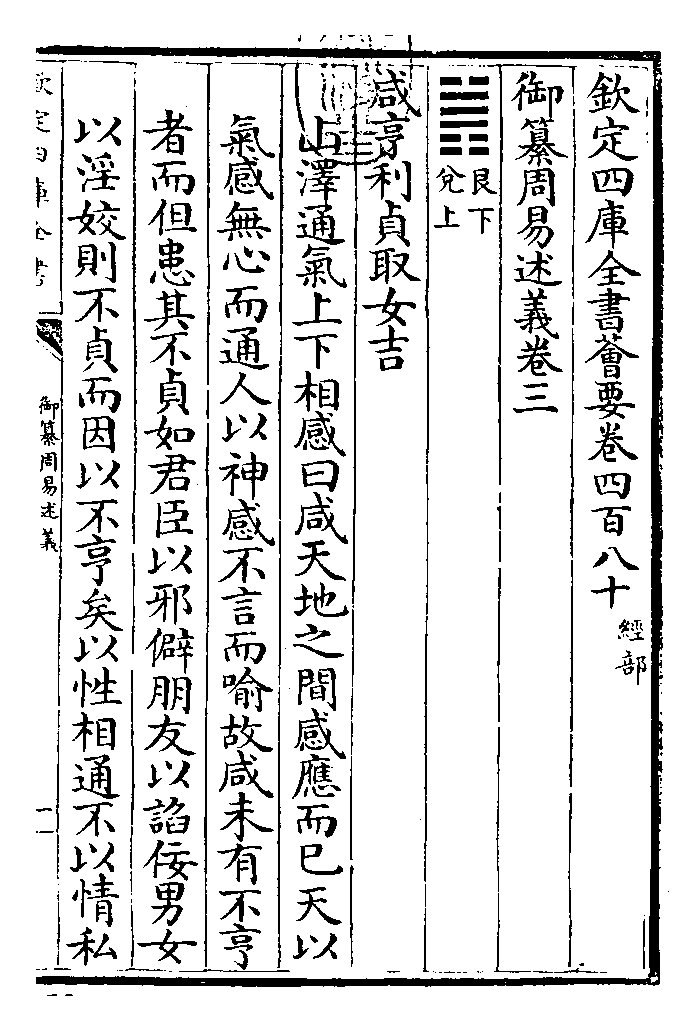 欽定四庫全書薈要卷四百八十 經部
御纂周易述義卷三
艮下
兌上
咸亨利貞取女吉
山澤通氣上下相感曰咸天地之間感應而已天以
氣感無心而通人以神感不言而喻故咸未有不亨
者而但患其不貞如君臣以邪僻朋友以諂佞男女
以淫姣則不貞而因以不亨矣以性相通不以情私
欽定四庫全書
御纂周易述義
一